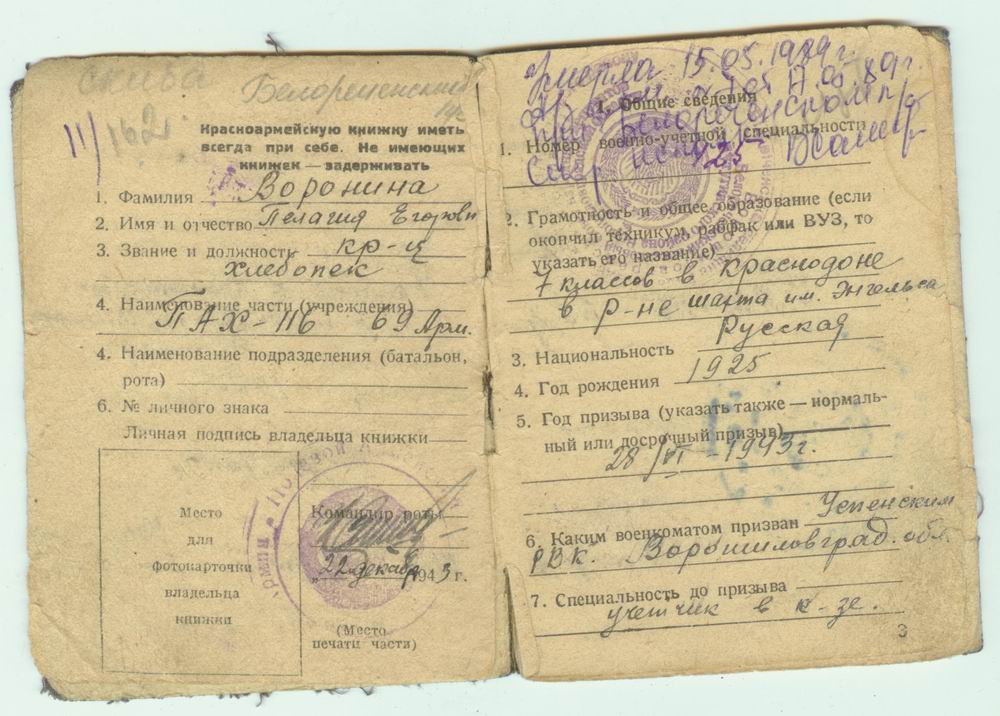 скиба
Белореченский
162
Красноармейскую книжку иметь
всегда при себе. Не имеющих
книжек — задерживать
1. Фамилия Воронина
2. Имя и отчество Пелагия Егоровн
3. Звание и должность кр-ц
хлебопек
4. Наименование части (учреждения)
ПАХ-116 69 Арм.
4. Наименование подразделения (батальон,
рота)
6. № личного знака
Личная подпись владельца книжки
Место
для
фотокарточки
владельца
книжки
Командир роты
„22 декабр 1943 г.
(Место
печати части)
Умерла 15.05.1989 г.
17.06.89г.
1. Общие сведения
Белореченском
1. Номер военно-учетной специальности
925
2. Грамотность и общее образование (если
окончил техникум, рабфак или ВУЗ, то
указать его название)
7 классов в Краснодоне
в р-не шахта им. Энгельса
3. Национальность Русская
4. Год рождения 1925
5. Год призыва (указать также — нормаль-
ный или досрочный призыв)
28/VI 1943г.
6. Каким военкоматом призван Успенским
РВК. Ворошиловград. обл.
7. Специальность до призыва
учетчик в к-зе.
3